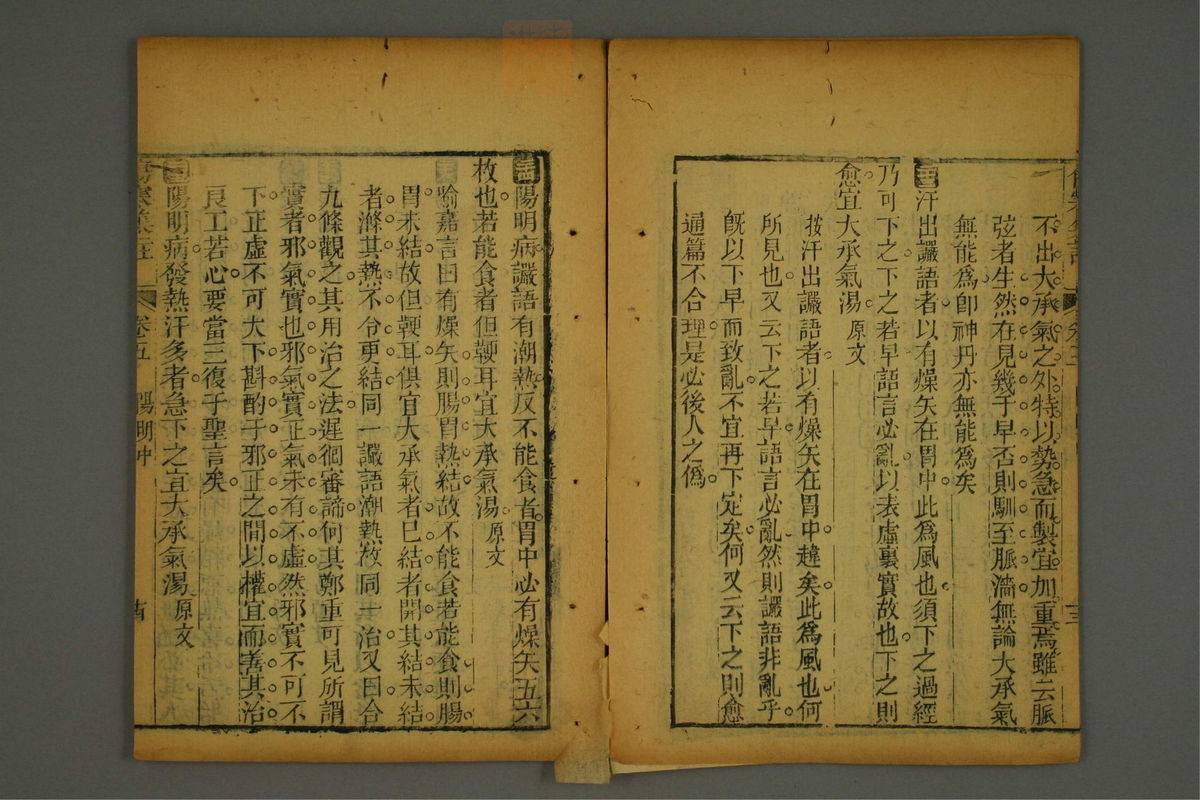 不出大承氣之外特以勢急而製宜加重焉雖云脈
弦者生然在見幾于早否則馴至脈濇無論大承氣
無能爲卽神丹亦無能爲矣
汗出讝語者以有燥矢在胃中此爲風也須下之過經
乃可下之下之若早語言必亂以表虛裏實故也下之則
愈宜大承氣湯 原文
按汗出讝語者以有燥矢在胃中謹矣此爲風也何
所見也又云下之若早語言必亂然則讝語非亂乎
旣以下早而致亂不宜再下定矣何又云下之則愈
通篇不合理是必後人之僞
陽明病讝語有潮熱反不能食者胃中必有燥矢五六
枚也若能食者但鞕耳宜大承氣湯 原文
喻嘉言曰有燥矢則腸胃熱結故不能食若能食則腸
胃未結故但鞕耳俱宜大承氣者已結者開其結未結
者滌其熱不令更結同一讝語潮熱故同一治又曰合
九條觀之其用治之法遲徊審諦何其鄭重可見所謂
實者邪氣實也邪氣實正氣未有不虛然邪實不可不
下正虛不可大下斟酌于邪正之間以權宜而善其治
良工若心要當三復于聖言矣
陽明病發熱汗多者急下之宜大承氣湯 原文
卷五 陽明中